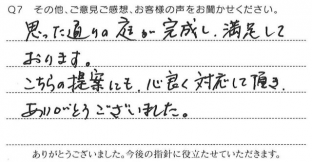 Q7 その他、ご意見ご感想、お客様の声をお聞かせください。
思った通りの庭が完成し、満足して
おります。
こちらの提案にも、心良く対応して頂き、
ありがとうございました。
ありがとうございました。今後の指針に役立たせていただきます。